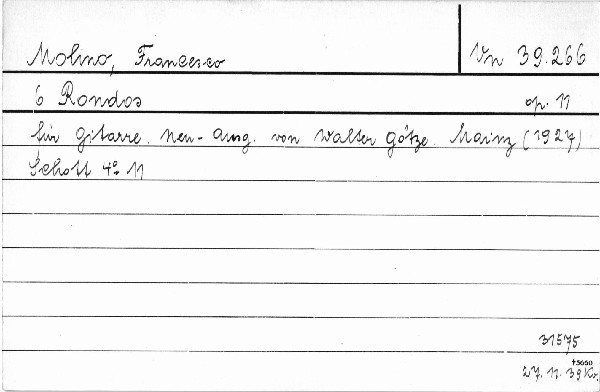 Molino, Francesco Vn 39.266
6 Rondos op. 11
für Gitarre. Neu-Ausg. von Walter Götze. Mainz (1927)
Schott 4° 11
31575
†5660
27. 11. 39 Kr.